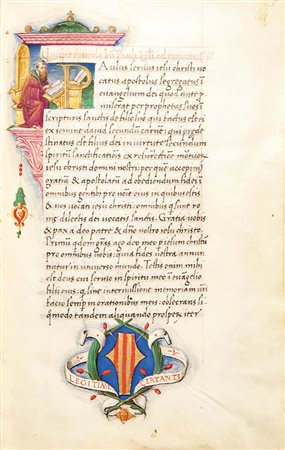 Aulus seruus iesu christi uo
catus apostolus segregatus i
euangelium dei quod ante p
miserat per prophetas suos i
scripturis sanctis de filio suo qui factus est ei
ex semine dauid secundum carnē: qui predes
tinatus est filius dei in uirtute secundum
spiritum sanctificationis ex resurrectione mortuor
iesu christi domini nostri per quem accepim
gratiā & apostolatū ad obediendum fidei i
omnibus gentib pro nomine eius in quibus estis
& uos uocati iesu christi: omnibus q sunt
rome dilectis dei uocatis sanctis. Gratia uobis
& pax a deo patre & dno nostro iesu christo.
Primū gras ago deo meo p iesum christū
pro omnibus uobis: quia fides uestra annun
tiatur in uniuerso mundo. Testis enim mihi
est deus cui seruio in spiritu meo i euāgelio
filii eius: q. sine intermissione memoriam uri
facio semp in orationibus meis: obsecrans si
quomodo tandem aliquando prosperū iter
LEGITIME CERTANTI